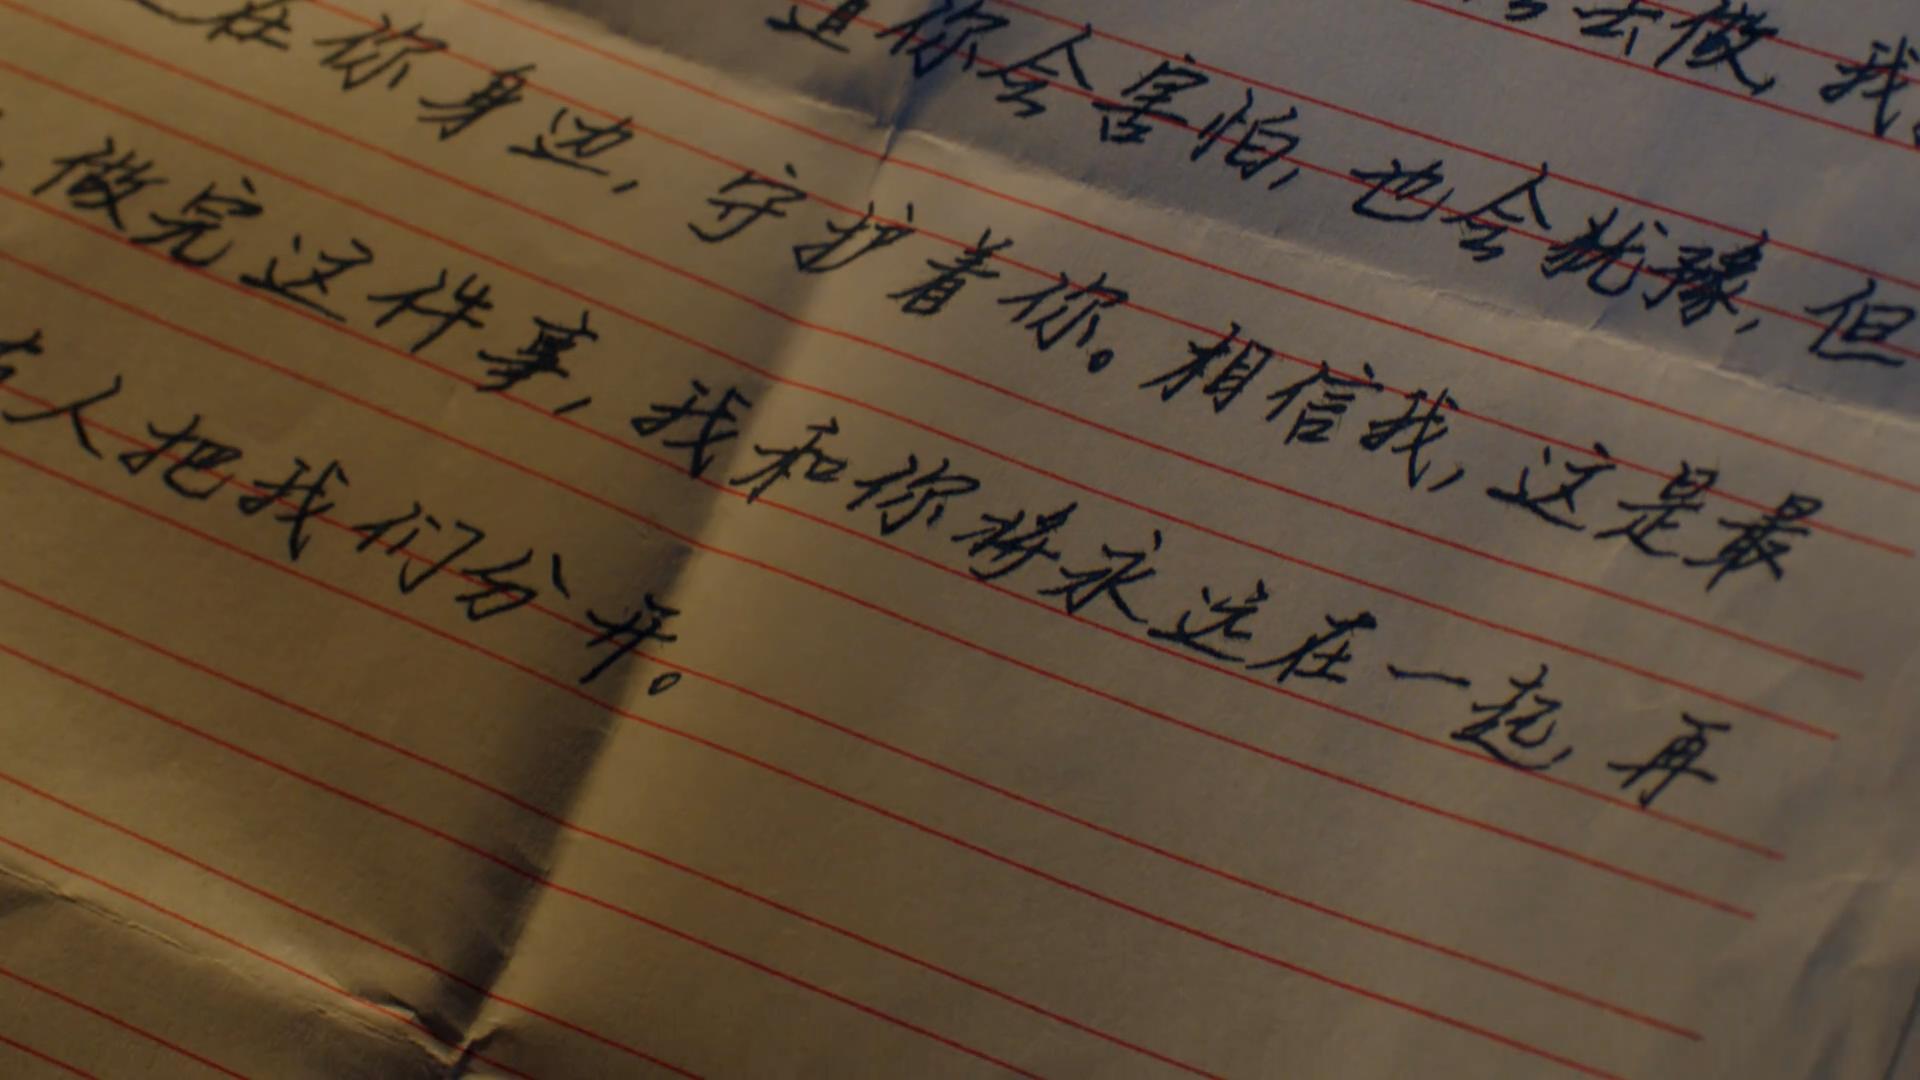 去做，我
道你会害怕，也会犹豫，但
在你身边，守护着你。相信我，这是最
做完这件事，我和你将永远在一起，再
人把我们分开。